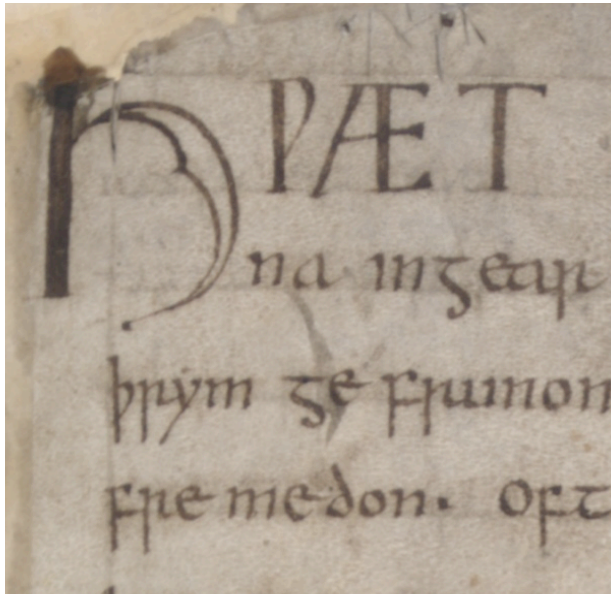 HǷÆT
na in gear
þrym ge frunon
fre medon. Oft